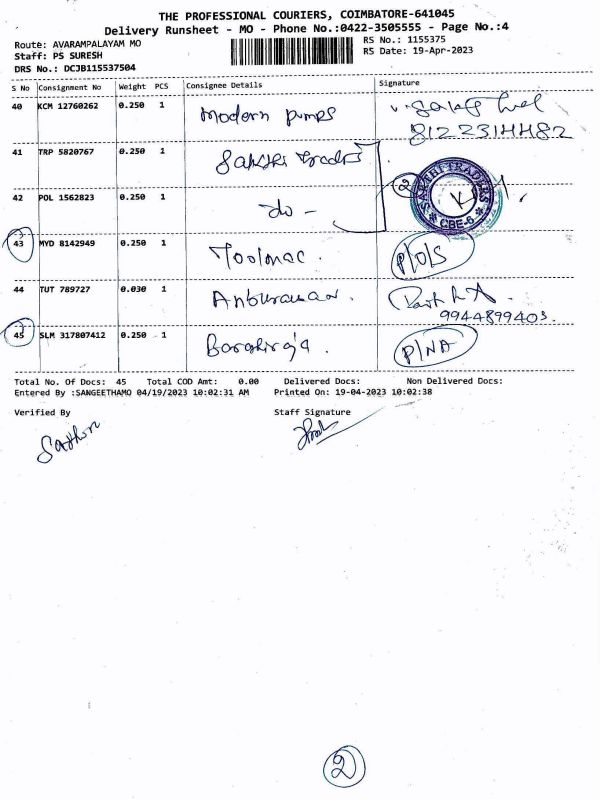 THE PROFESSIONAL COURIERS, COIMBATORE-641045
Delivery Runsheet - MO - Phone No.:0422-3505555 - Page No.:4
Route: AVARAMPALAYAM MO
Staff: PS SURESH
DRS No.: DCJB115537504
RS No.: 1155375
RS Date: 19-Apr-2023
S No Consignment No Weight PCS Consignee Details Signature
40 KCM 12760262 0.250 1 Modern pumps
8122314482
41 TRP 5820767 0.250 1 Sakthi Traders
42 POL 1562823 0.250 1 do - 2 SAKTHI TRADERS * CBE-6 *
43 MYD 8142949 0.250 1 Toolmac. P/O/S
44 TUT 789727 0.030 1 Anburaman.
9944899403.
45 SLM 317807412 0.250 1 P/NA
Total No. Of Docs: 45 Total COD Amt: 0.00 Delivered Docs: Non Delivered Docs:
Entered By :SANGEETHAMO 04/19/2023 10:02:31 AM Printed On: 19-04-2023 10:02:38
Verified By Staff Signature
2